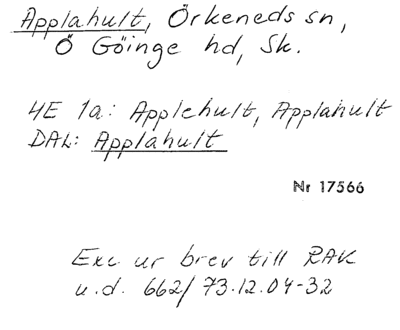 Applahult, Örkeneds sn,
Ö Göinge hd, Sk.
4E 1a: Applehult, Applahult
DAL: Applahult
Nr 17566
Exc. ur brev till RAK
u.d. 662/73.12.04-32